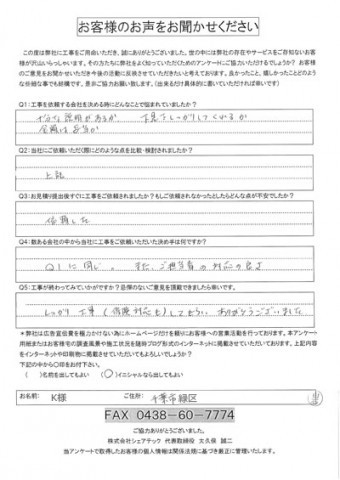 お客様のお声をお聞かせください
この度は弊社に工事をご用命いただき、誠にありがとうございました。世の中には弊社の存在やサービスをご存知ないお客
様が沢山いらっしゃいます。その方たちに弊社をよく知っていただくためのアンケートにご協力いただけるでしょうか? お客
様のご意見をお聞かせいただき今後の活動に反映させていただきたいと考えております。良かったこと、嬉しかったことどのよう
な些細な事でも結構です。是非ご協力お願い致します。(出来るだけ具体的に書いていただければ幸いです)
Q1:工事を依頼する会社を決める時にどんなことで悩まれていましたか?
十分な説明があるか 下見をしっかりしてくれるか
金額は妥当か
Q2:当社にご依頼いただく際にどのような点を比較・検討されましたか?
上記
Q3:お見積り提出後すぐに工事をご依頼されましたか?もしご依頼されなかったとしたらどんな点が不安でしたか?
依頼した
Q4:数ある会社の中から当社に工事をご依頼いただいた決め手は何ですか?
Q1に同じ。また、ご担当者の対応の良さ
Q5:工事が終わってみていかがですか?忌憚のないご意見を頂戴できましたら幸いです。
しっかり工事(対応も)してもらい、ありがとうございました
*弊社は広告宣伝費を極力かけない為にホームページだけを頼りにお客様への営業活動を行っております。本アンケー
ト用紙またはお客様宅の調査風景や施工状況を随時ブログ形式のインターネットに掲載させていただいております。上記内容
をインターネットや印刷物に掲載させていただいてもよろしいでしょうか?
下記の中から○印をお付け下さい。
( )名前を出してもよい (○)イニシャルなら出してもよい
お名前: K様 ご住所: 千葉市緑区
FAX 0438-60-7774
ご協力ありがとうございました。
株式会社シェアテック 代表取締役 大久保 誠二
当アンケートで取得したお客様の個人情報は関係法規に基づき厳正に管理いたします。